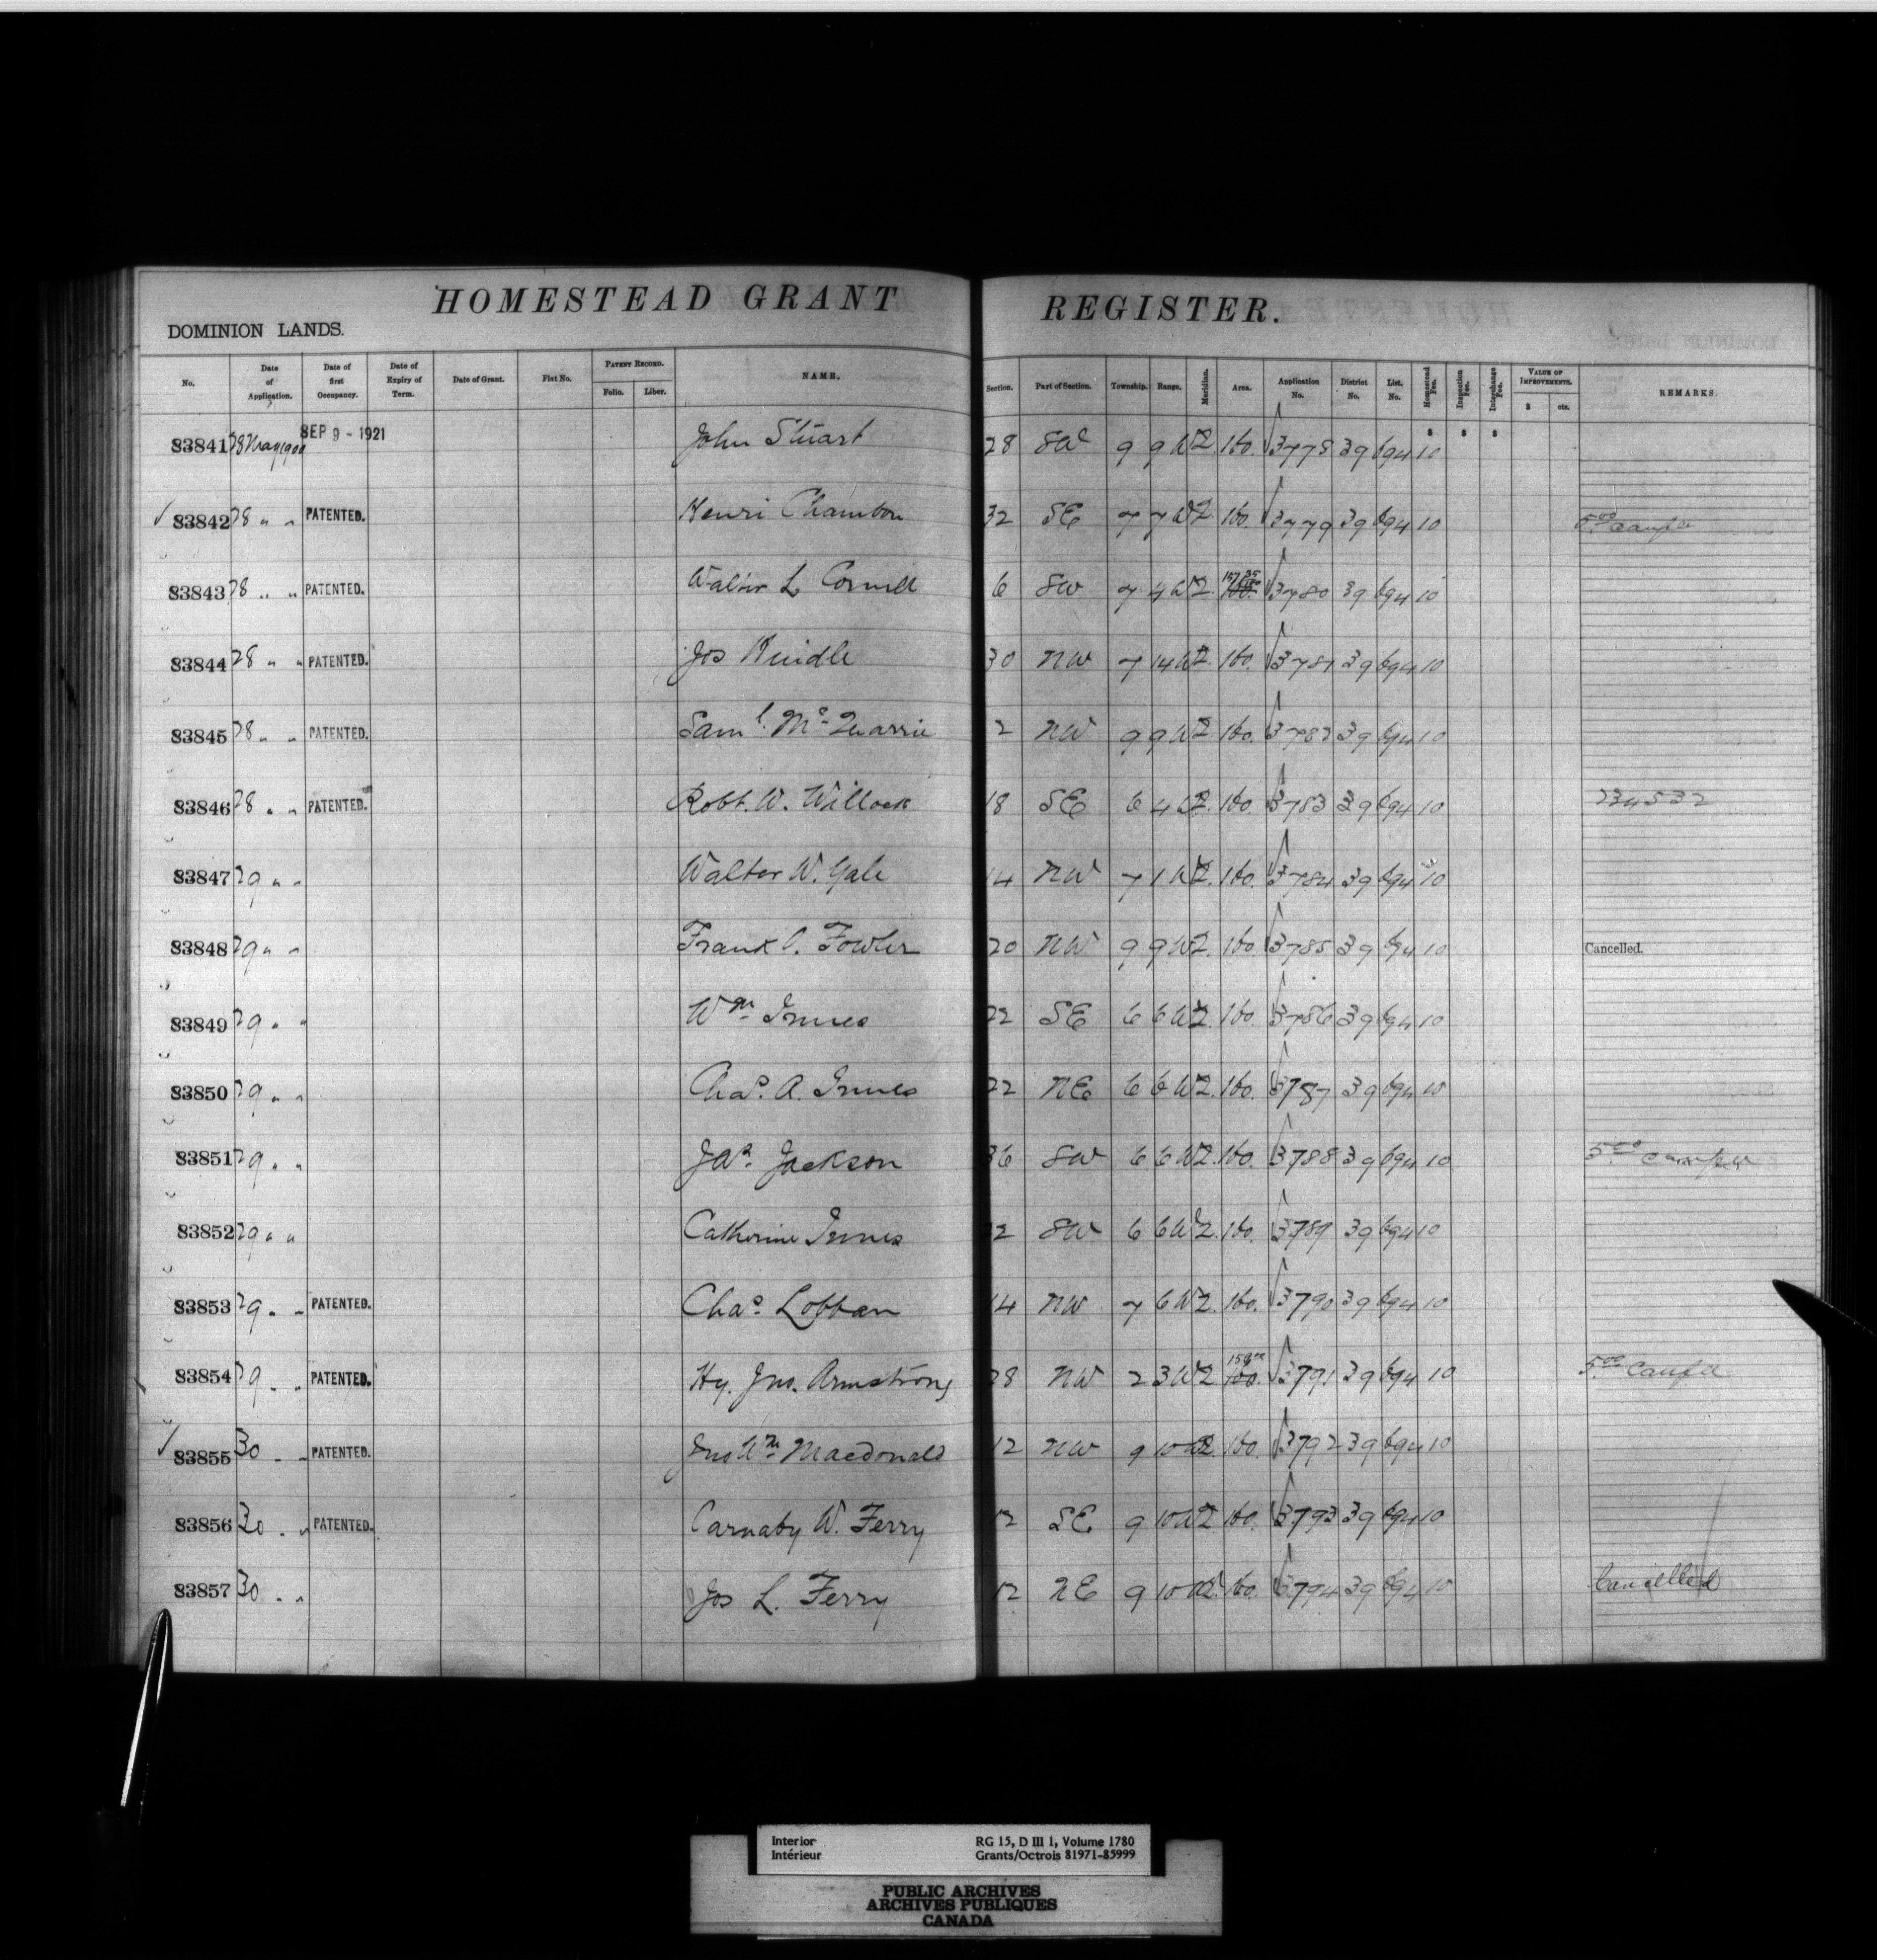 HOMESTEAD GRANT REGISTER.
DOMINION LANDS.
No. Date of Application. Date of first Occupancy. Date of Expiry of Term. Date of Grant. Fiat No. PATENT RECORD. Folio. Liber. NAME. Section. Part of Section. Township. Range. Meridian. Area. Application No. District No. List. No. Homestead Fee. Inspection Fee. Interchange Fee. VALUE OF IMPROVEMENTS. $ cts. REMARKS.
$ $ $
83841 28 May 1900 SEP 9 - 1921 John Stuart 28 SW 9 9 W2. 160. 3778 39 694 10
83842 28 " " PATENTED. Henri Chambon 32 SE 7 7 W2. 160. 3779 39 694 10 5.00
83843 28 " " PATENTED. Walter L 6 SW 7 4 W2. 160. 3780 39 694 10
83844 28 " " PATENTED. Jos 30 NW 7 14 W2. 160. 3781 39 694 10
83845 28 " " PATENTED. Saml. McQuarrie 2 NW 9 9 W2 160. 3782 39 694 10
83846 28 " " PATENTED. Robt. W. Willock 18 SE 6 4 W2. 160. 3783 39 694 10 234532
83847 29 " " Walter W. Yale 14 NW 7 1 W2. 160. 3784 39 694 10
83848 29 " " Frank C. Fowler 20 NW 9 9 W2. 160 3785 39 694 10 Cancelled.
83849 29 " " Wm Innes 22 SE 6 6 W2. 160. 3786 39 694 10
83850 29 " " Chas. A. Innes 22 NE 6 6 W2. 160. 3787 39 694 10
83851 29 " " Jas. Jackson 36 SW 6 6 W2. 160. 3788 39 694 10 5.00
83852 29 " " Catherine Innes 22 SW 6 6 W2. 160. 3789 39 694 10
83853 29 " " PATENTED. Chas. Lobban 14 NW 7 6 W2. 160. 3790 39 694 10
83854 29 " " PATENTED. Hy. Jno. Armstrong 28 NW 2 3 W2. 160. 3791 39 694 10 5.00
83855 30 " " PATENTED. Jno Wm Macdonald 12 NW 9 10 W2. 160. 3792 39 694 10
83856 30 " " PATENTED. Carnaby W. Ferry 12 SE 9 10 W2 160. 3793 39 694 10
83857 30 " " Jos L. Ferry 12 NE 9 10 W2. 160. 3794 39 694 10 Cancelled
Interior RG 15, D III 1, Volume 1780
Intérieur Grants/Octrois 81971-85999
PUBLIC ARCHIVES
ARCHIVES PUBLIQUES
CANADA